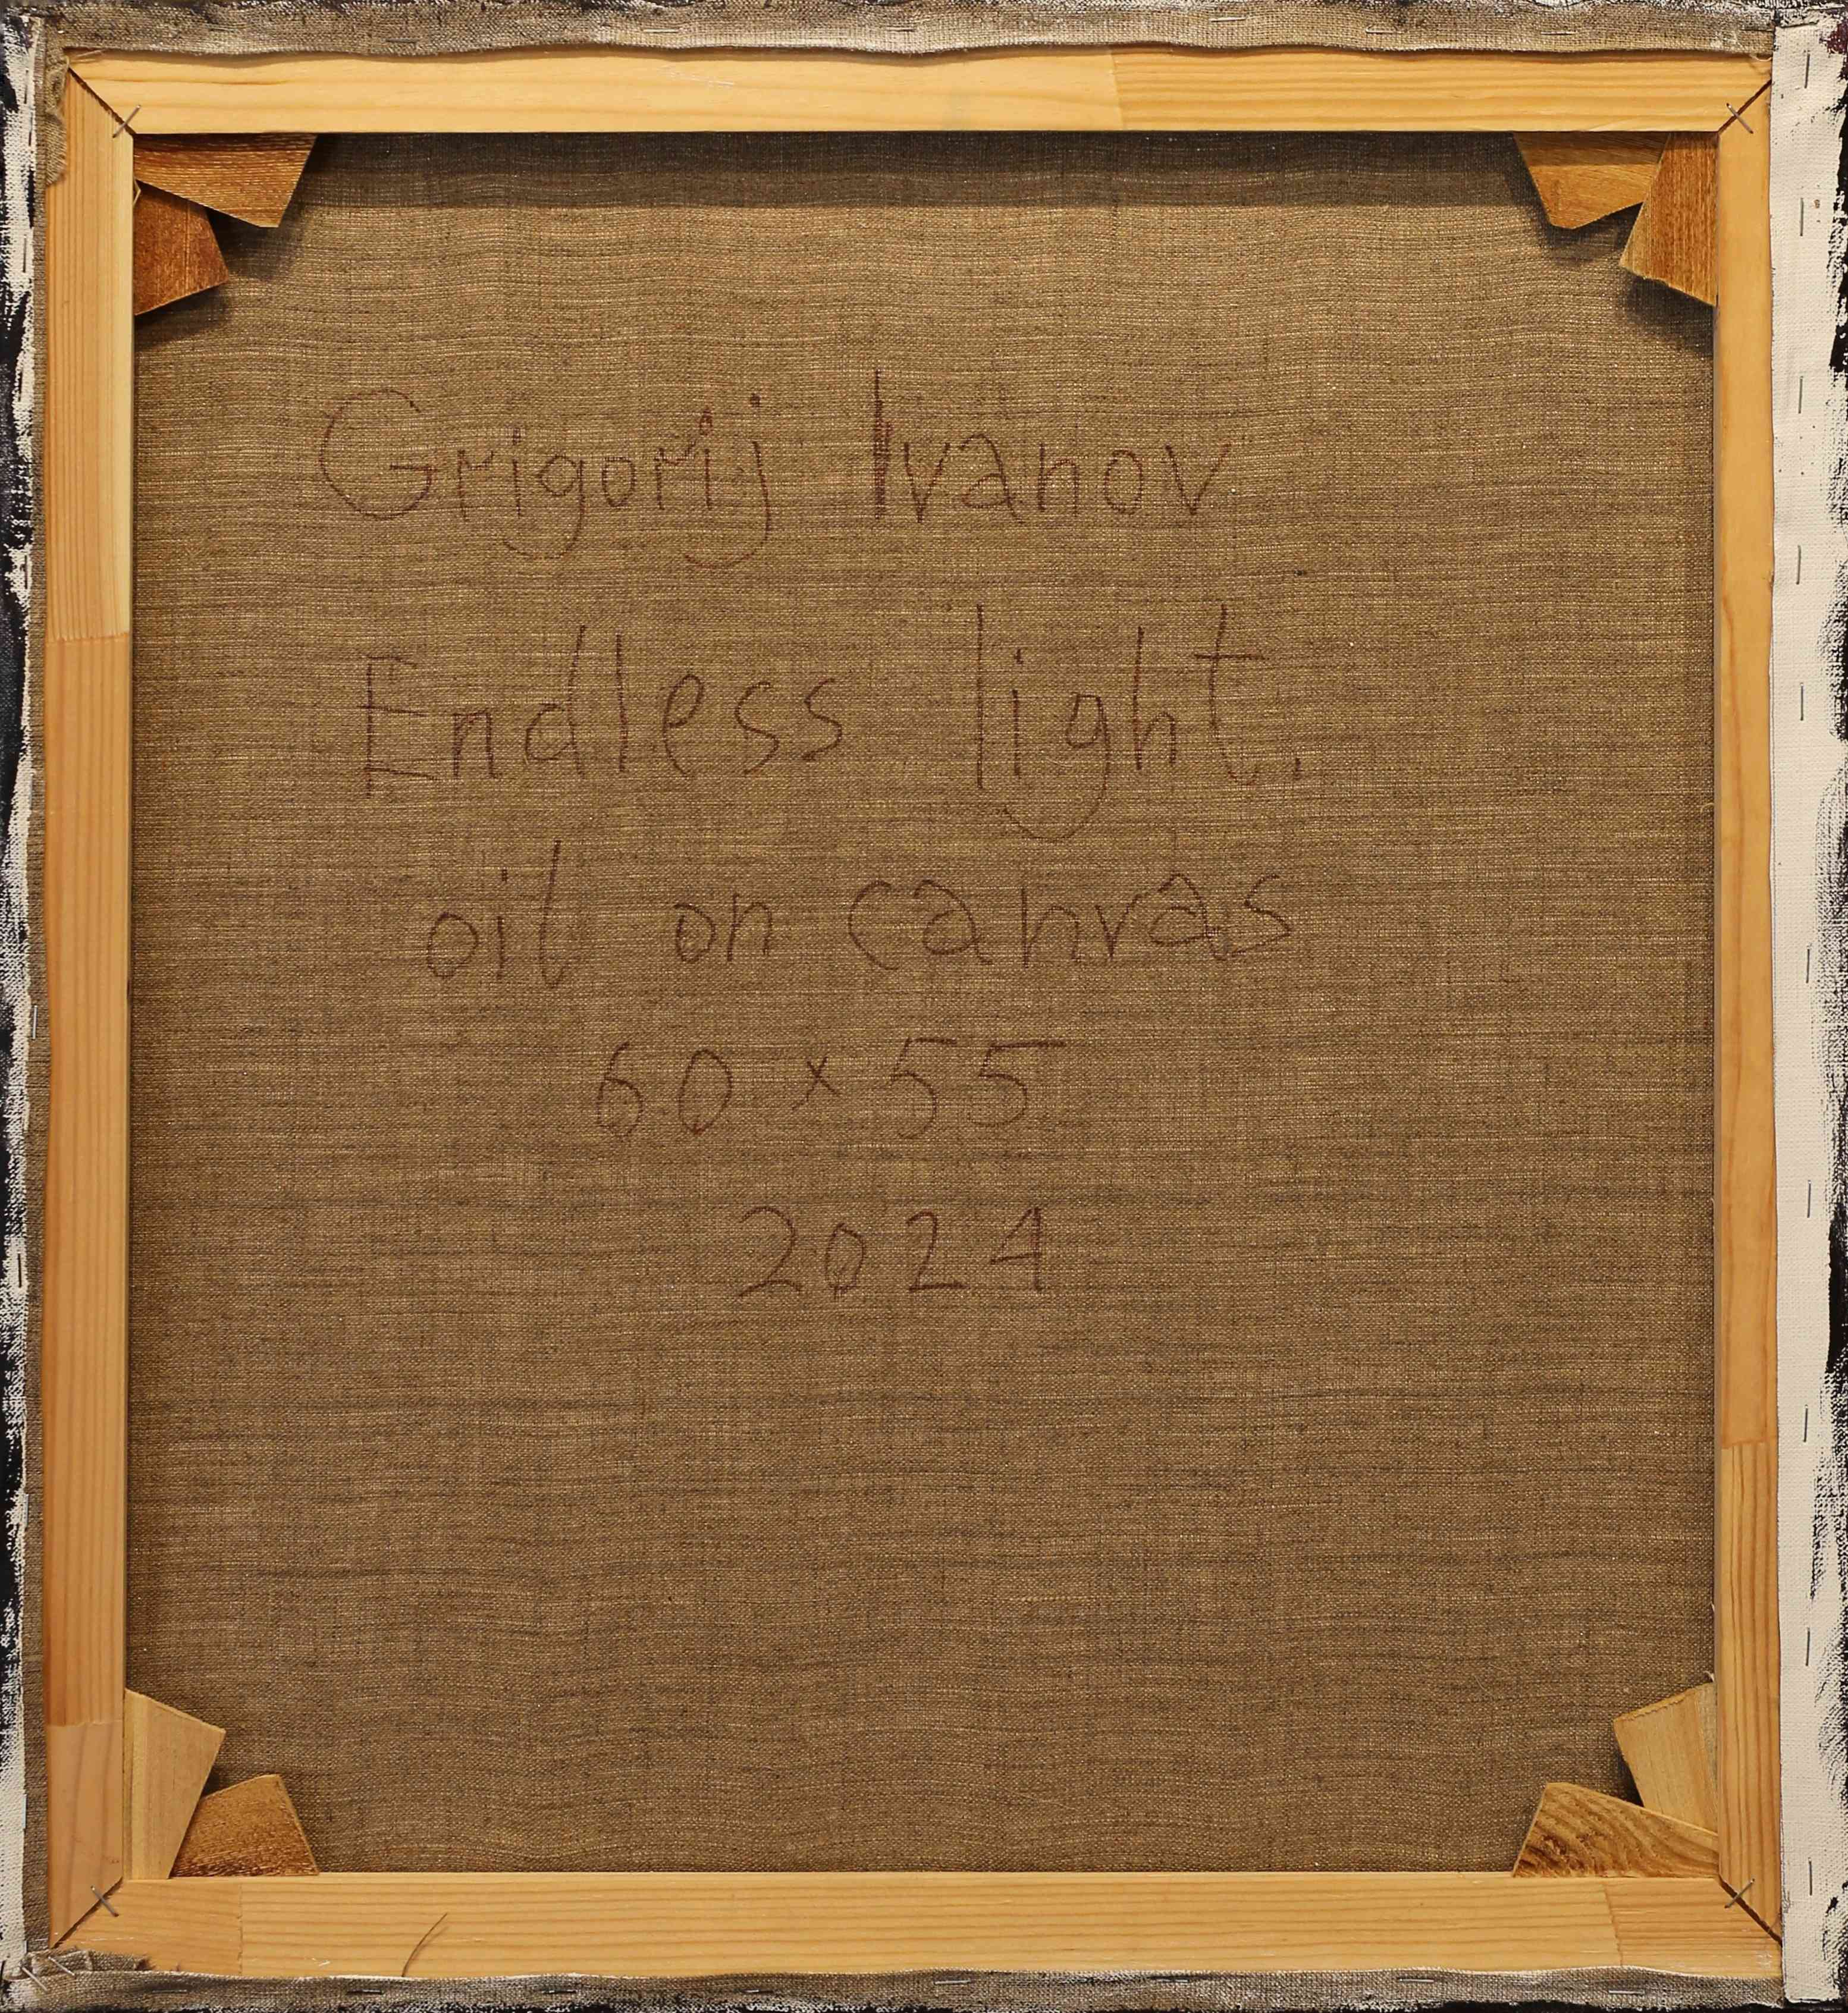 Grigorij Ivanov
Endless light.
oil on canvas
60 x 55
2024